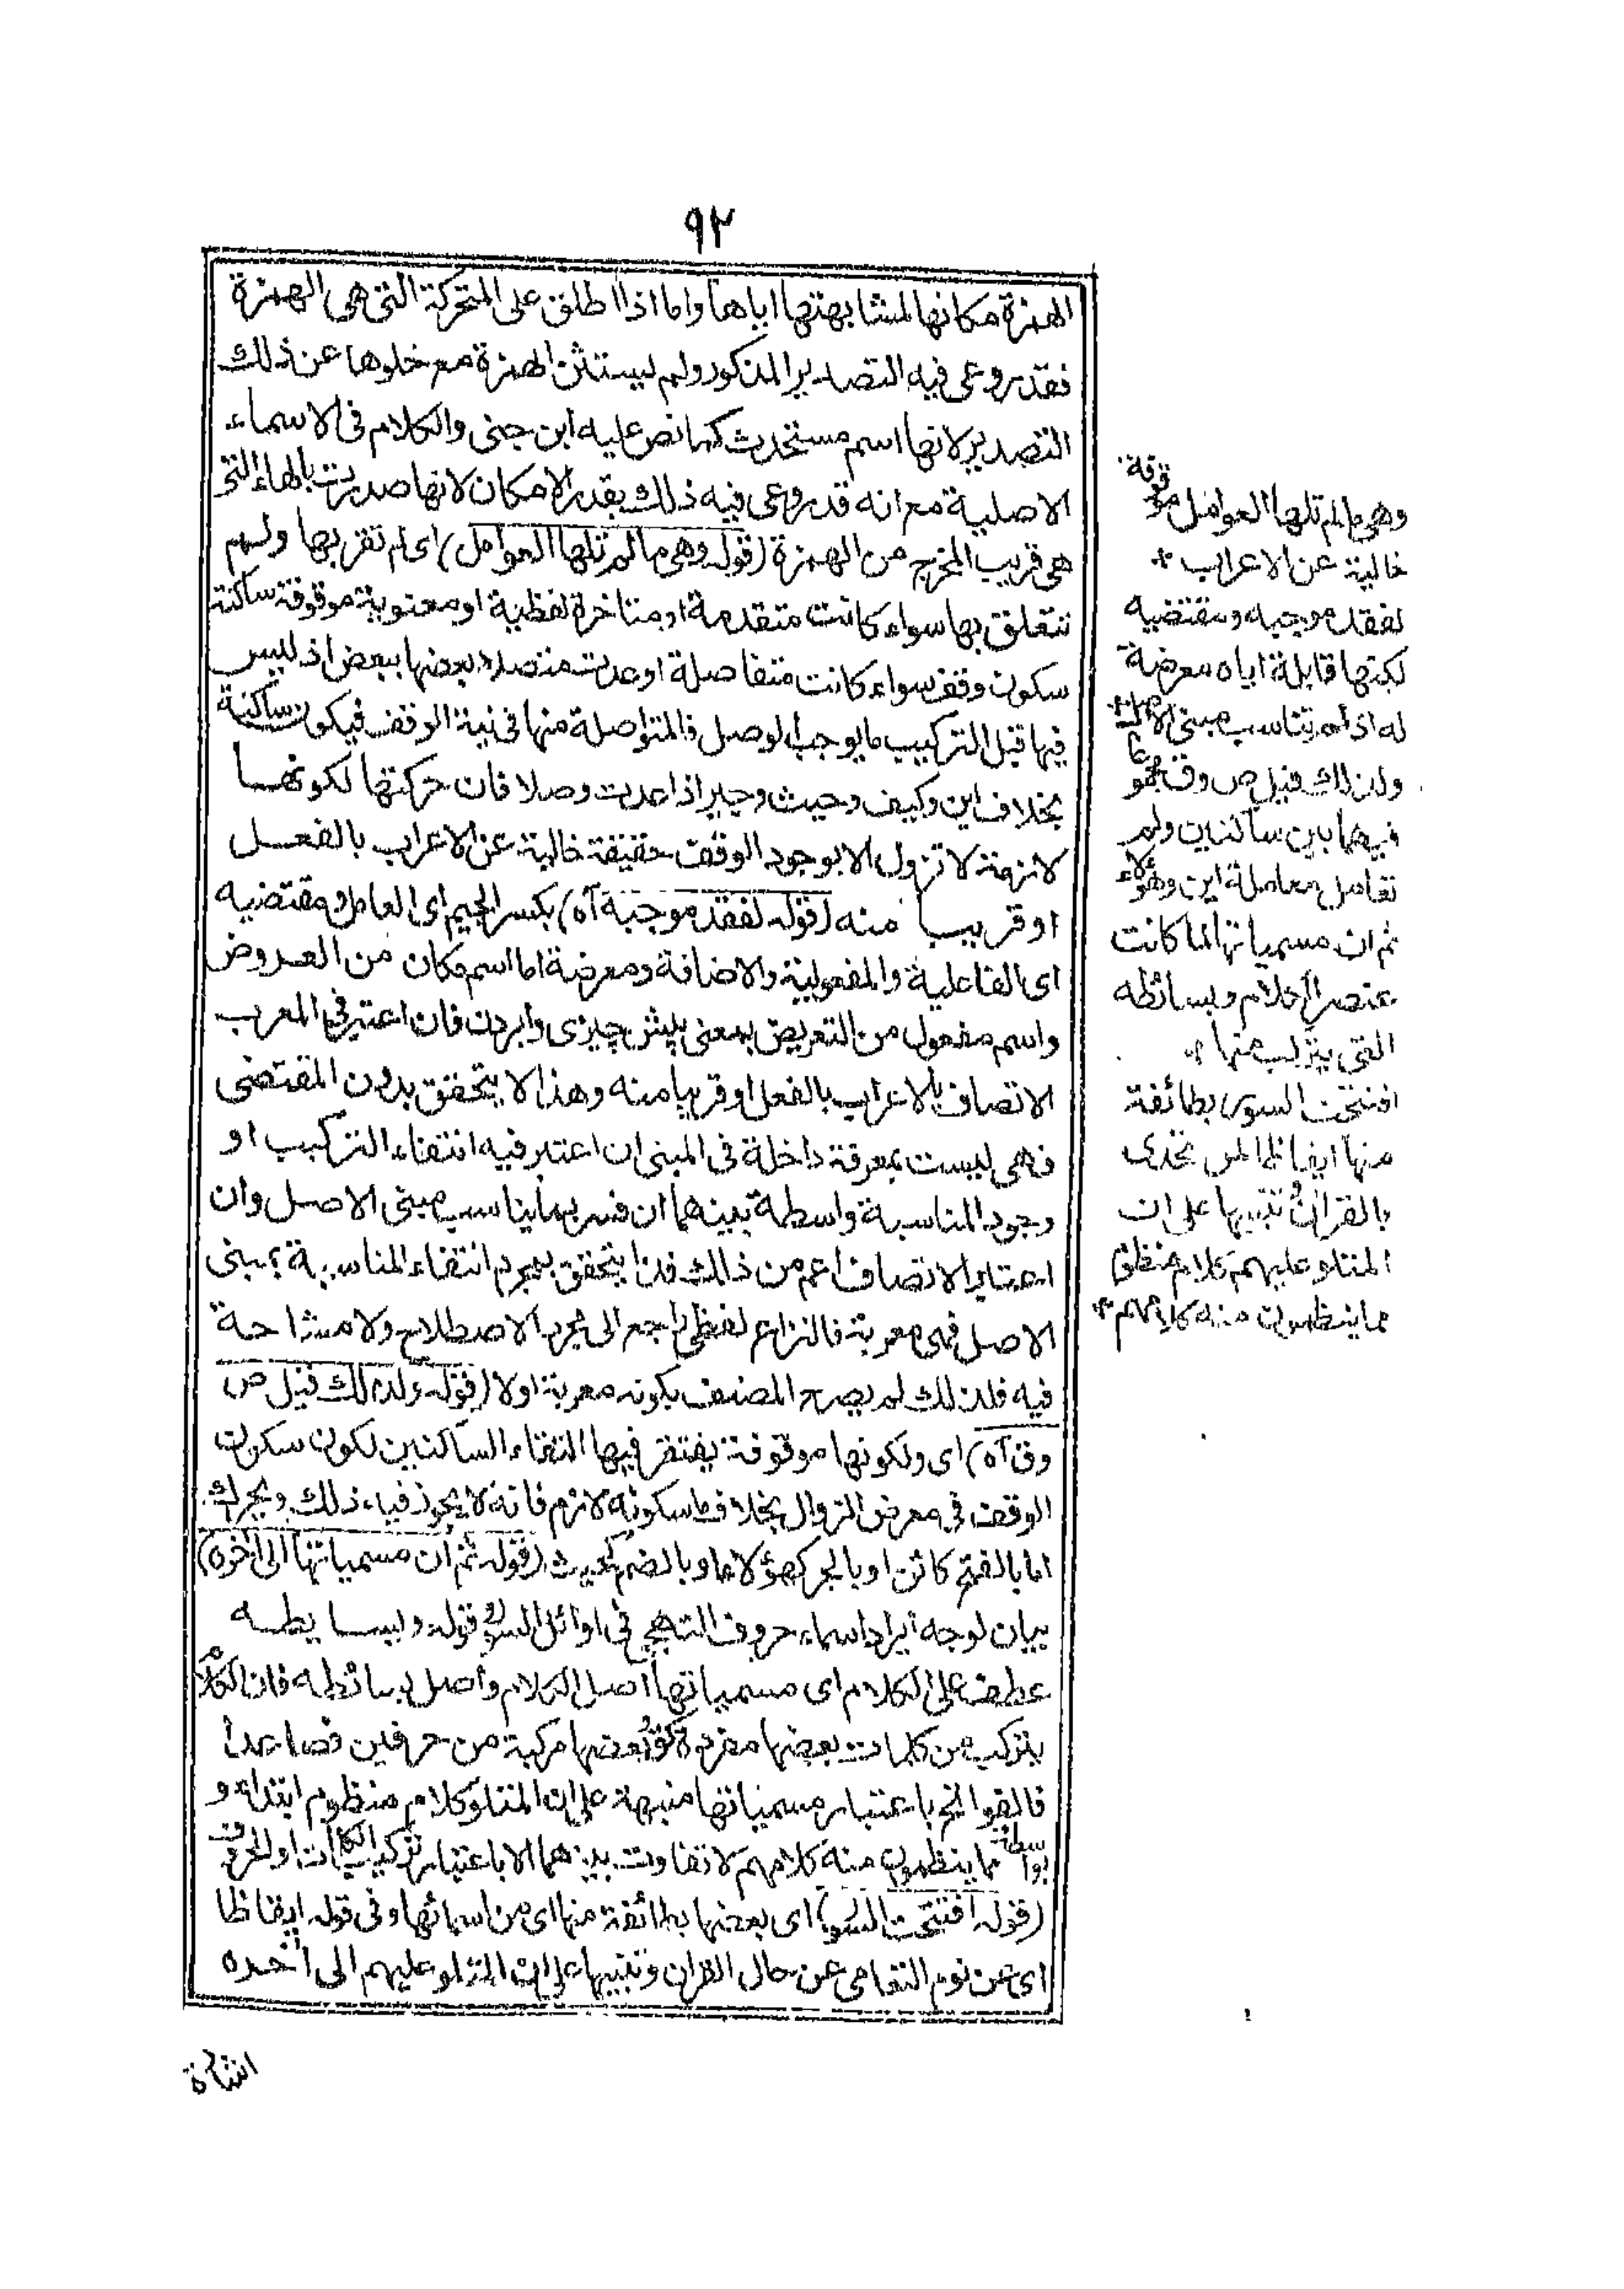 ٩٢
الهمزة مكانها لمشابهتها اياها واما اذا اطلق على المتحركة التى هى الهمزة
فقد روعى فيه التصدير المذكور ولم يستثن الهمزة مع خلوها عن ذلك
التصدير لانها اسم مستحدث كما نص عليه ابن جنى والكلام فى الاسماء
الاصلية مع انه قد روعى فيه ذلك بقدر الامكان لانها صدرت بالهاء التى
هى قريب المخرج من الهمزة (قوله وهى ما لم تلها العوامل) اى لم تقربها ولم
تتعلق بها سواء كانت متقدمة او متاخرة لفظية او معنوية موقوفة ساكنة
سكون وقف سواء كانت متفاصلة او عدت متصلا بعضها ببعض اذ ليس
فيها قبل التركيب ما يوجب الوصل فالمتواصلة منها فى نية الوقف فيكون ساكنة
بخلاف اين وكيف وحيث وجير اذا عدت وصلا فان حركتها لكونها
لازمة لا تزول الا بوجود الوقف حقيقة خالية عن الاعراب بالفعل
او قريبا منه (قوله لفقد موجبه آه) بكسر الجيم اى العامل ومقتضيه
اى الفاعلية والمفعولية والاضافة ومعرضة اما اسم مكان من العروض
واسم مفعول من التعريض بمعنى پيش چيزى وابردن فان اعتبر فى المعرب
الاتصاف بالاعراب بالفعل او قريبا منه وهذا لا يتحقق بدون المقتضى
فهى ليست بمعربة داخلة فى المبنى ان اعتبر فيه انتفاء التركيب او
وجود المناسبة واسطة بينهما ان فسر بما يناسب مبنى الاصل وان
اعتبار الاتصاف اعم من ذلك فذا يتحقق بمجرد انتفاء المناسبة بمبنى
الاصل فهى معربة فالنزاع لفظى راجع الى مجرد الاصطلاح ولا مشاحة
فيه فلذلك لم يصرح المصنف بكونه معربة اولا (قوله ولذلك قيل ص
وق آه) اى ولكونها موقوفة يغتفر فيها التقاء الساكنين لكون سكون
الوقف فى معرض الزوال بخلاف ما سكونه لازم فانه لا يجوز فيه ذلك ويحرك
اما بالفتح كائن او بالجر كهؤلاء او بالضم كحيث (قوله ثم ان مسمياتها الى آخره)
بيان لوجه ايراد اسماء حروف التهجى فى اوائل السور قوله وبسايطه
عطف على الكلام اى مسمياتها اصل الكلام واصل بسائطه فان الكلام
يتركب من كلمات بعضها مفردة وبعضها مركبة من حرفين فصاعدا
فالفواتح باعتبار مسمياتها منبهة على ان المتلو كلام منظوم ابتداء و
بواسطة مما ينظمون منه كلامهم لا تفاوت بينهما الا باعتبار تركيب الكلمات او الحروف
(قوله افتتحت السور) اى بعضها بطائفة منها اى من اسمائها وفى قوله ايقاظا
اى عن نوم التعامى عن حال القران وتنبيها على ان المتلو عليهم الى آخره
اشارة
وهى ما لم تلها العوامل موقوفة
خالية عن الاعراب
لفقد موجبه ومقتضيه
لكنها قابلة اياه معرضة
له اذ لم تناسب مبنى الاصل
ولذلك قيل ص وق مجموعا
فيهما بين ساكنين ولم
تعامل معاملة اين وهؤلاء
ثم ان مسمياتها لما كانت
عنصر الكلام وبسائطه
التى يتركب منها
افتتحت السور بطائفة
منها ايقاظا لمن تحدى
بالقرآن وتنبيها على ان
المتلو عليهم كلام منظوم
مما ينظمون منه كلامهم